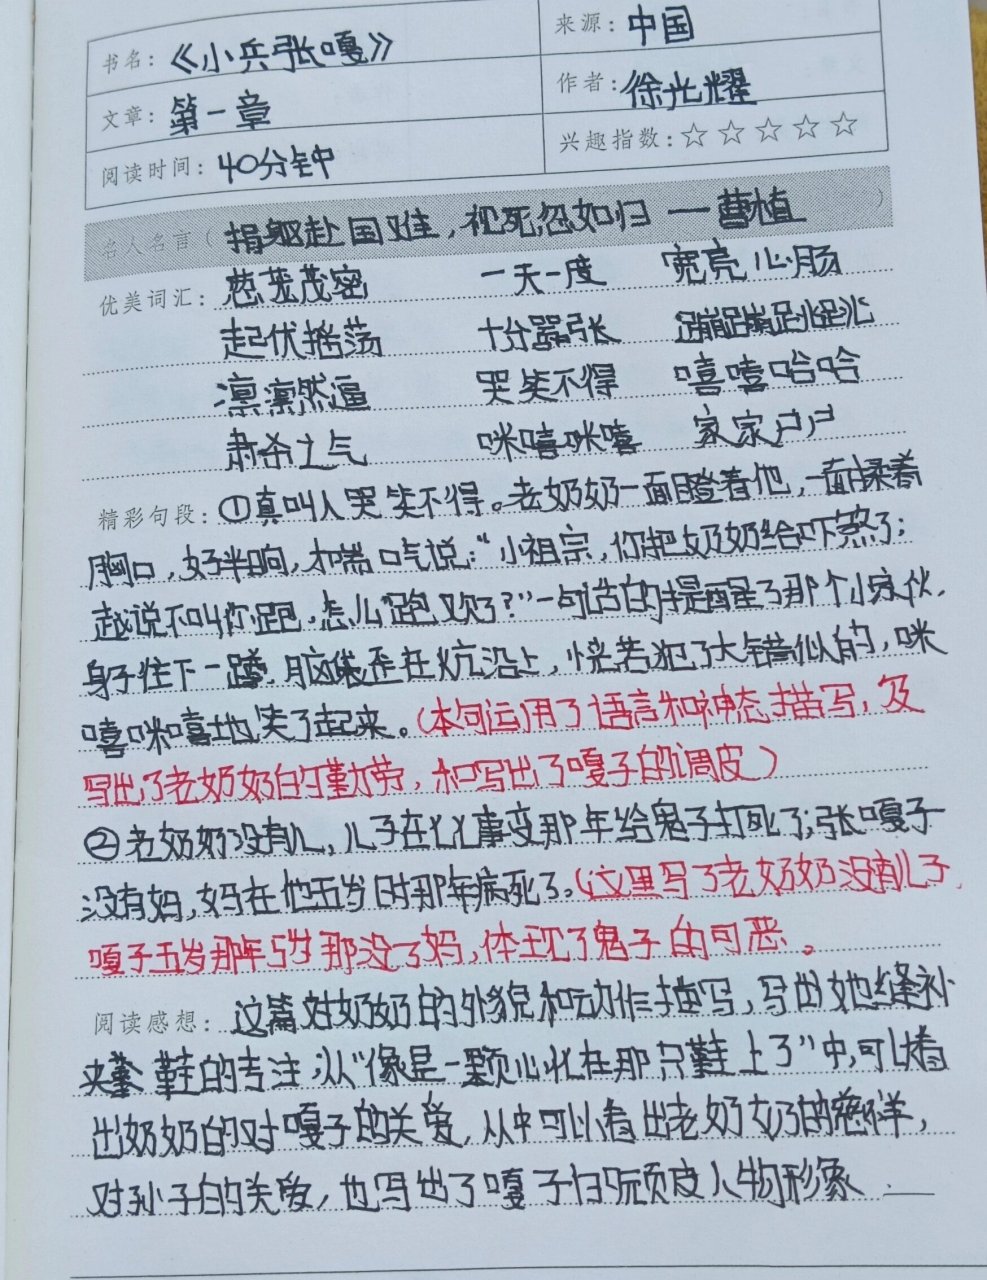 书名：《小兵张嘎》 来源：中国
文章：第一章 作者：徐光耀
阅读时间：40分钟 兴趣指数：☆☆☆☆☆
名人名言（捐躯赴国难，视死忽如归 — 曹植）
优美词汇：葱茏茂密 一天一度 宽亮心肠
起伏摇荡 十分嚣张 蹦蹦跳跳
凛凛然逼 哭笑不得 嘻嘻哈哈
肃杀之气 咪嘻咪嘻 家家户户
精彩句段：①真叫人哭笑不得。老奶奶一面瞪着他，一面揉着
胸口，好半晌，才喘口气说：“小祖宗，你把奶奶给吓煞了；
越说不叫你跑，怎么跑又欢了？”一句话的提醒了那个小家伙，
身子往下一蹲，脑袋歪在炕沿上，恍若犯了大错似的，咪
嘻咪嘻地笑了起来。（本句运用了语言和神态描写，及
写出了老奶奶的勤劳，和写出了嘎子的调皮）
②老奶奶没有儿，儿子在化事变那年给鬼子打死了；张嘎子
没有妈，妈在他五岁时那年病死了。（这里写了老奶奶没有儿子，
嘎子五岁那年5岁那没了妈，体现了鬼子的可恶。
阅读感想：这篇对奶奶的外貌和动作描写，写出她缝补
鞋的专注，从“像是一颗心扎在那只鞋上了”中，可以看
出奶奶的对嘎子的关爱，从中可以看出老奶奶的慈祥，
对孙子的关爱，也写出了嘎子的顽皮人物形象